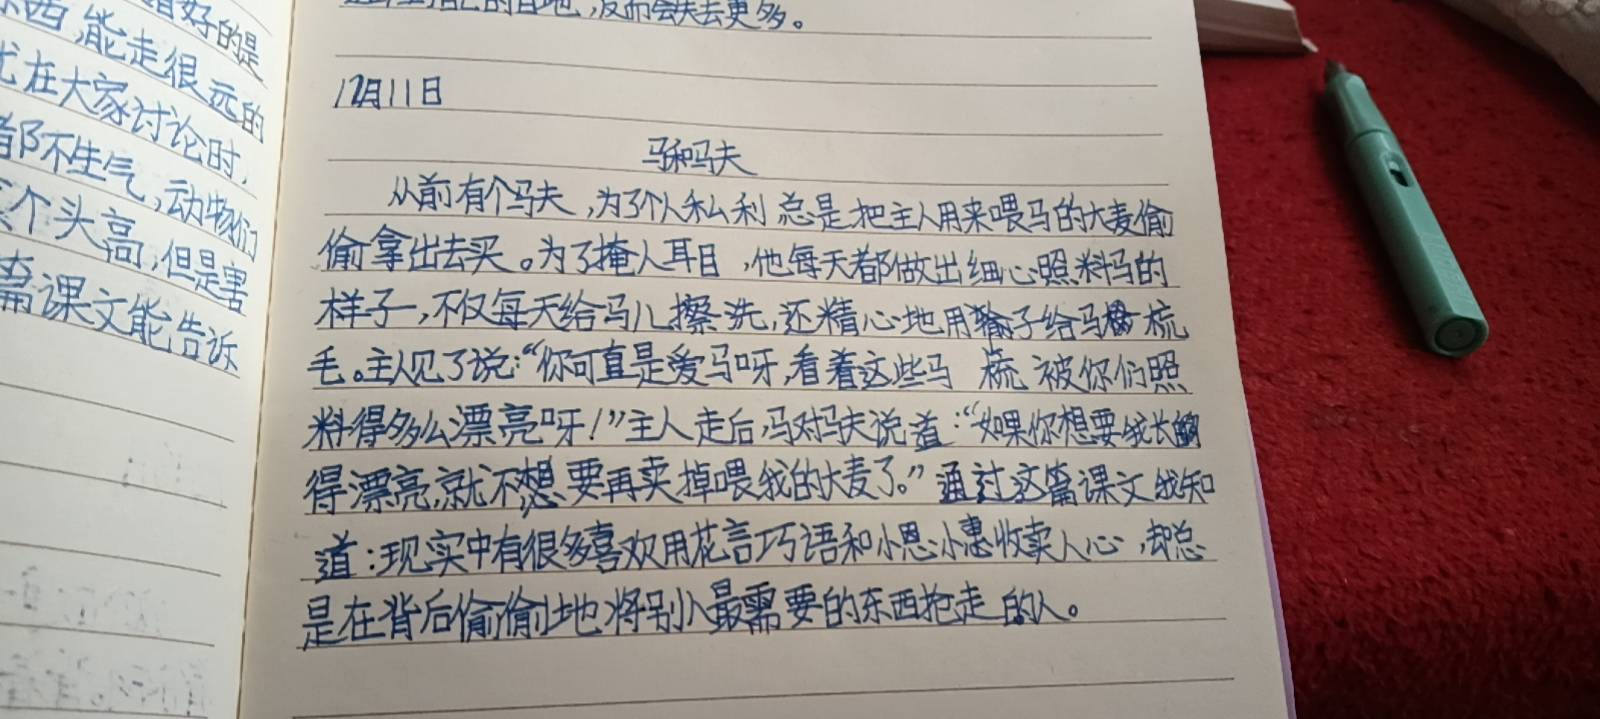 着好的是
东西,能走很远的
尤在大家讨论时,
都不生气,动物们
个头高,但是害
篇课文能告诉
的目地,反而会失去更多。
12月11日
马和马夫
从前有个马夫,为了个人私利总是把主人用来喂马的大麦偷
偷拿出去买。为了掩人耳目,他每天都做出细心照料马的
样子,不仅每天给马儿擦洗,还精心地用子给马梳
毛。主人见了说:“你可真是爱马呀,看着这些马梳被你们照
料得多么漂亮呀!”主人走后,马对马夫说道:“如果你想要我长
得漂亮,就不想要再卖掉喂我的大麦了。”通过这篇课文我知
道:现实中有很多喜欢用花言巧语和小恩小惠收卖人心,却总
是在背后偷偷地将别人最需要的东西抢走的人。